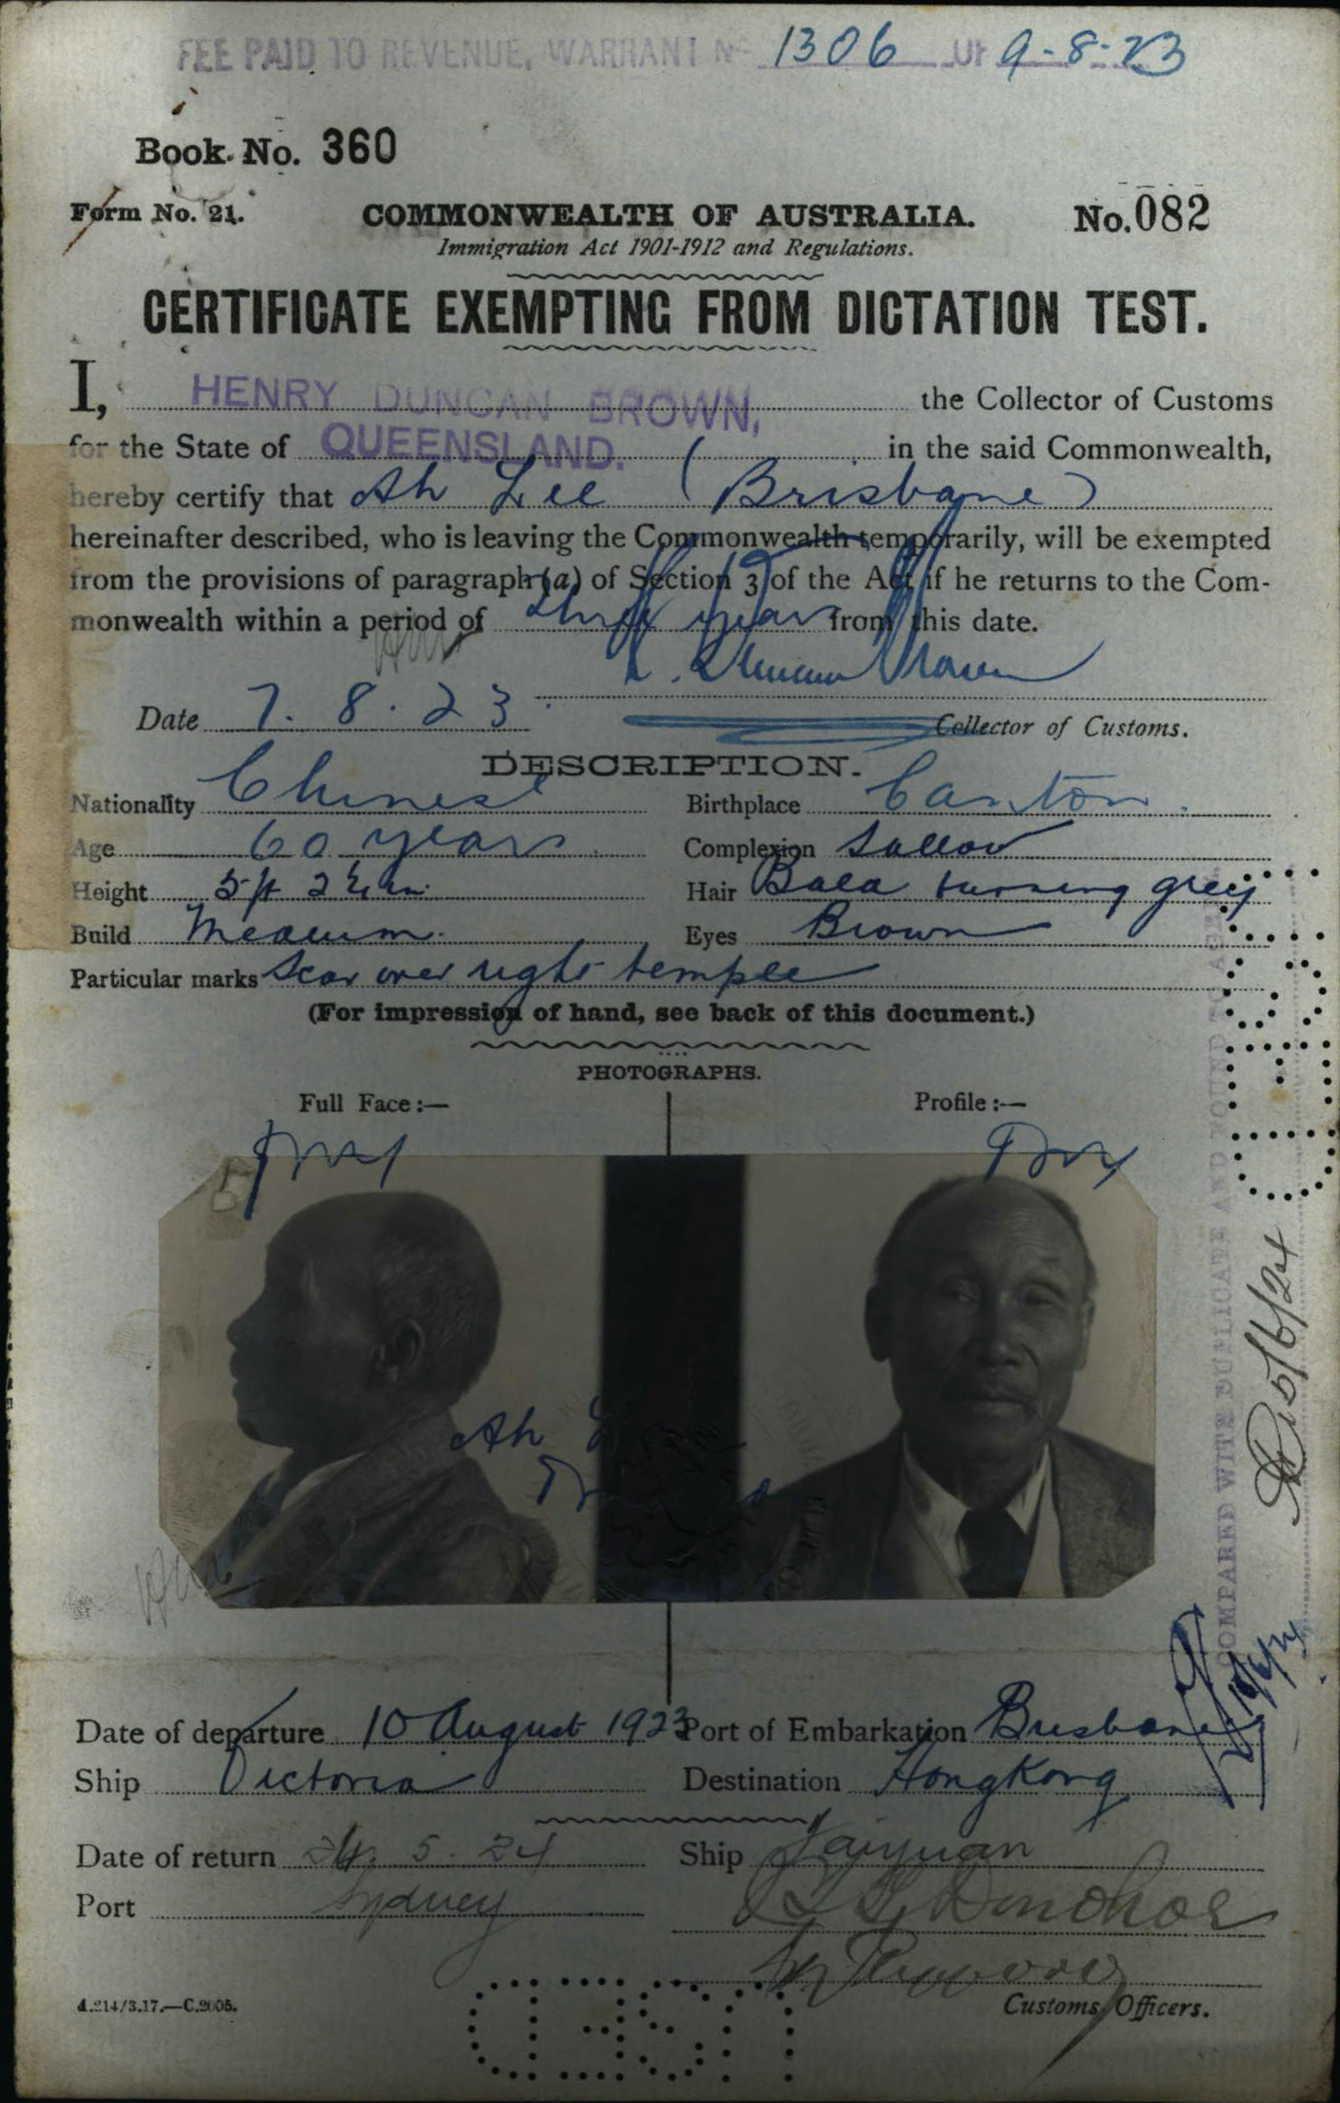 FEE PAID TO REVENUE, WARRANT No 1306 OF 9-8-23
Book No. 360
Form No. 21. COMMONWEALTH OF AUSTRALIA. No. 082
Immigration Act 1901-1912 and Regulations.
CERTIFICATE EXEMPTING FROM DICTATION TEST.
I, HENRY DUNCAN BROWN, the Collector of Customs
for the State of QUEENSLAND. in the said Commonwealth,
hereby certify that Ah Lee (Brisbane)
hereinafter described, who is leaving the Commonwealth temporarily, will be exempted
from the provisions of paragraph (a) of Section 3 of the Act if he returns to the Com-
monwealth within a period of three years from this date.
H. Duncan Brown
Date 7. 8. 23. Collector of Customs.
DESCRIPTION.
Nationality Chinese Birthplace Canton.
Age 60 years. Complexion Sallow
Height 5 ft 2 in. Hair Bald turning grey
Build Medium. Eyes Brown
Particular marks Scar over right temple
(For impression of hand, see back of this document.)
PHOTOGRAPHS.
Full Face:— Profile:—
Ah
COMPARED WITH DUPLICATE AND FOUND TO AGREE
5/6/24
Date of departure 10 August 1923 Port of Embarkation Brisbane
Ship Victoria Destination HongKong
Date of return 24. 5. 24 Ship Taiyuan
Port Sydney
Donohoe
Customs Officers.